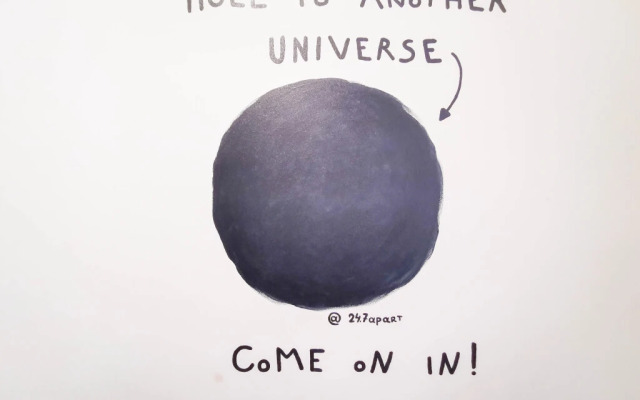 HOLE TO ANOTHER
UNIVERSE
@ 24.7apart
COME oN IN!